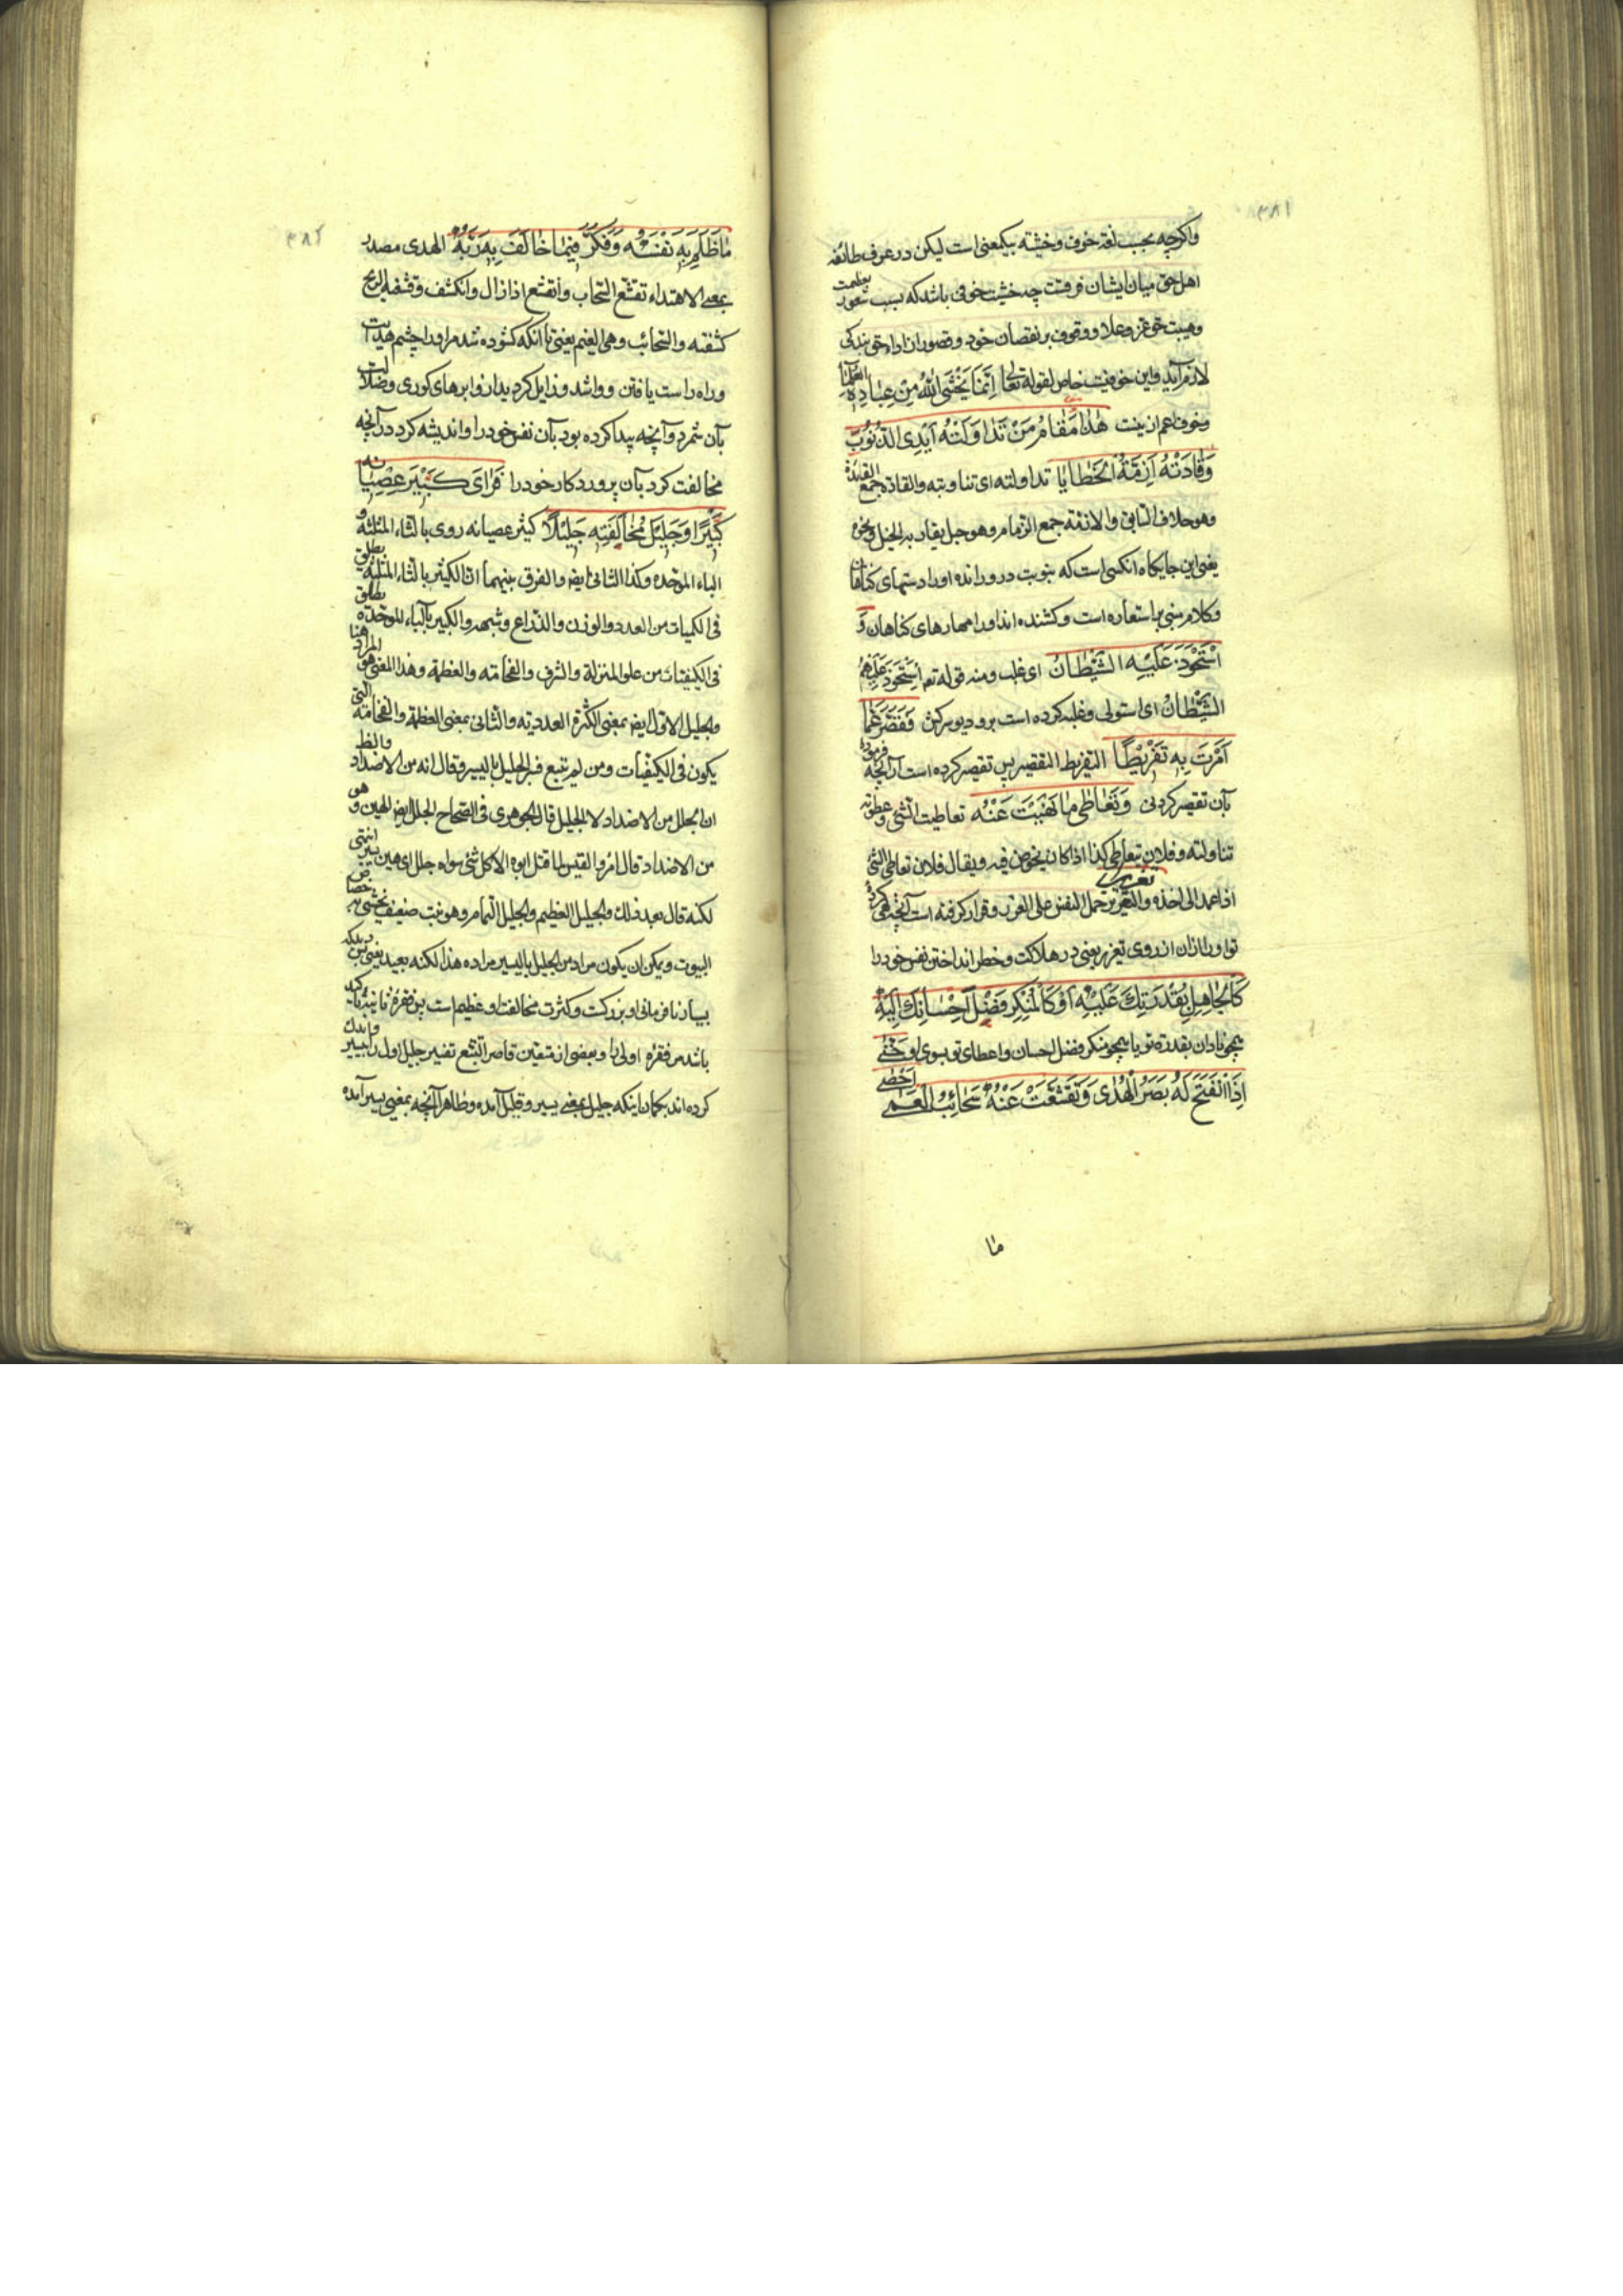 ۳۸۱
واکرچه بحسب لغة خوف وخشیة بیکمعنی است لیکن در عرف طائفه
اهل حق میان ایشان فرقست چه خشیت خوفی باشد که بسبب شعور بعظمت
وهیبت حق عز وعلا ووقوف بر نقصان خود وقصور از اداء حق بندکی
لازم آید واین خوفیست خاص لقوله تعالی اِنَّمَا یَخْشَی اللهَ مِنْ عِبَادِهِ الْعُلَمَآءُ
وخوف اعم ازینست هٰذَا مَقَامُ مَنْ تَدَاوَلَتْهُ اَیْدِی الذُّنُوْبِ
وَقَادَتْهُ اَزِمَّةُ الْخَطَایَا تداولته ای تناوبته والقادة جمع القیدة
وهو خلاف السابق والازمة جمع الزمام وهو حبل یقاد به الخیل ونحوه
یعنی این جایکاه انکسی است که بنوبت درورانده اورا دستهای کناهان
وکلام مبنی بر استعاره است وکشنده اند اورا مهارهای کناهان وَ
اسْتَحْوَذَ عَلَیْهِ الشَّیْطَانُ ای غلب ومنه قوله تعه اِسْتَحْوَذَ عَلَیْهِمُ
الشَّیْطَانُ ای استولی وغلبه کرده است برو دیو سرکش فَقَصَّرَ عَمَّا
اَمَرْتَ بِهِ تَفْرِیْطًا التفریط التقصیر پس تقصیر کرده است ازآنچه فرمودهٔ
بآن تقصیر کردنی وَتَعَاطٰی مَا نَهَیْتَ عَنْهُ تعاطیت الشی وعطوته
تناولته وفلان یتعاطی کذا اذا کان یخوض فیه ویقال فلان تعاطی الشی
اذا عمد الی اخذه تغریرا والتغریر حمل النفس علی الغرر وفراکرفته است آنچه نهی کردهٔ
تو اورا ازان از روی تغریر یعنی در هلاکت وخطر انداختن نفس خود را
کَالْجَاهِلِ بِقُدْرَتِكَ عَلَیْهِ اَوْ کَالْمُنْکِرِ فَضْلَ اِحْسَانِكَ اِلَیْهِ
همچو نادان بقدرة تو یا همچو منکر فضل احسان واعطای تو بسوی او حَتّٰی
اِذَا انْفَتَحَ لَهُ بَصَرُ الْهُدٰی وَتَقَشَّعَتْ عَنْهُ سَحَائِبُ الْعَمٰی اَحْصٰی
ما
۳۸۲
مَا ظَلَمَ بِهِ نَفْسَهُ وَفَکَّرَ فِیْمَا خَالَفَ بِهِ رَبَّهُ الهدی مصدر
بمعنی الاهتداء تقشع السحاب وانقشع اذا زال وانکشف وقشعه الریح
کشفته والسحائب وهی الغیم یعنی تا آنکه کشوده شد مر اورا چشم هدایت
وراه راست یافتن وواشد وزایل کردید ازو ابرهای کوری وضلالت
بآن شمرد وآنچه پیدا کرده بود بآن نفس خود را واندیشه کرد در آنچه
مخالفت کرد بآن پروردکار خود را فَرَاٰی کَبِیْرَ عِصْیَانِهِ
کَبِیْرًا وَجَلِیْلَ مُخَالَفَتِهِ جَلِیْلًا کثیر عصیانه روی بالثاء المثلثة و
الباء الموحده وکذا الثانی ایضه والفرق بینهما ان الکثیر بالثاء المثلثة یطلق
فی الکمیات من العدد والوزن والذراع وشبهه والکبیر بالباء الموحدة یطلق
فی الکیفیات من علو المنزلة والشرف والفخامة والعظمة وهذا المعنی هو المراد هنا
والجلیل الاول ایضه بمعنی الکثرة العددیة والثانی بمعنی العظمة والفخامة التی
یکون فی الکیفیات ومن لم یتبع فسر الجلیل بالیسیر وقال انه من الاضداد والظ
ان الجلل من الاضداد لا الجلیل قال الجوهری فی الصحاح الجلل ایضه الهین وهو
من الاضداد قال امرؤ القیس لما قتل ابوه الا کل شئ سواه جلل ای هین یسیر انتهی
لکنه قال بعد ذلك والجلیل العظیم والجلیل الثمام وهو نبت ضعیف یحشی به خصاص
البیوت ویمکن ان یکون مراد من الجلیل بالیسیر مراده هذا لکنه بعید یعنی پس دید که
بسیار نافرمانی او بزرکست وکثرت مخالفت او عظیم است پس فقرهٔ ثانیه تاکید
باشد مر فقرهٔ اولی را وبعضی از متتبعین قاصر التتبع تفسیر جلیل اول را بیسیر واندك
کرده اند بکمان اینکه جلیل بمعنی یسیر وقلیل آمده وظاهرا آنچه بمعنی یسیر آمده